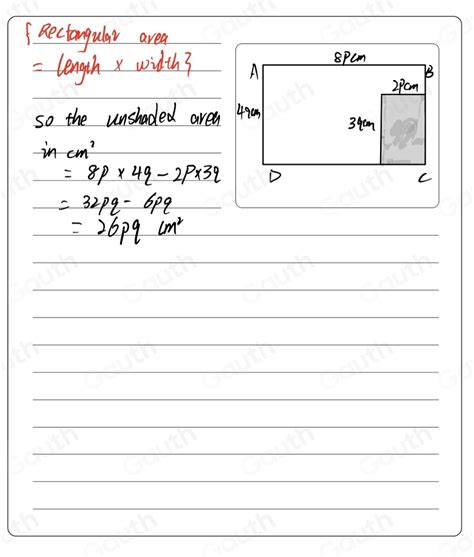 {Rectangular area
= length x width}
so the unshaded area
in cm²
= 8p x 4q - 2p x 3q
= 32pq - 6pq
= 26pq cm²
8pcm
A
B
2pcm
4qcm
3qcm
D
C
Gauth